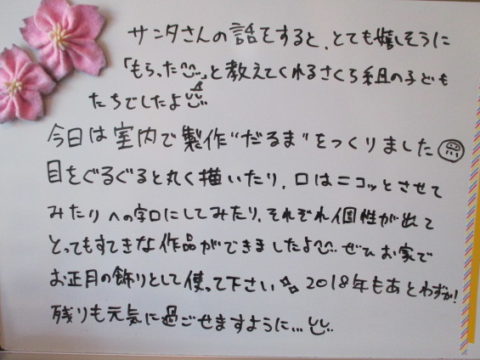 サンタさんの話をすると、とても嬉しそうに
「もらった」と教えてくれるさくら組の子ども
たちでしたよ
今日は室内で製作"だるま"をつくりました
目をぐるぐると丸く描いたり、口はニコッとさせて
みたりへの字口にしてみたり、それぞれ個性が出て
とってもすてきな作品ができましたよ ぜひお家で
お正月の飾りとして使って下さい 2018年もあとわずか!
残りも元気に過ごせますように…